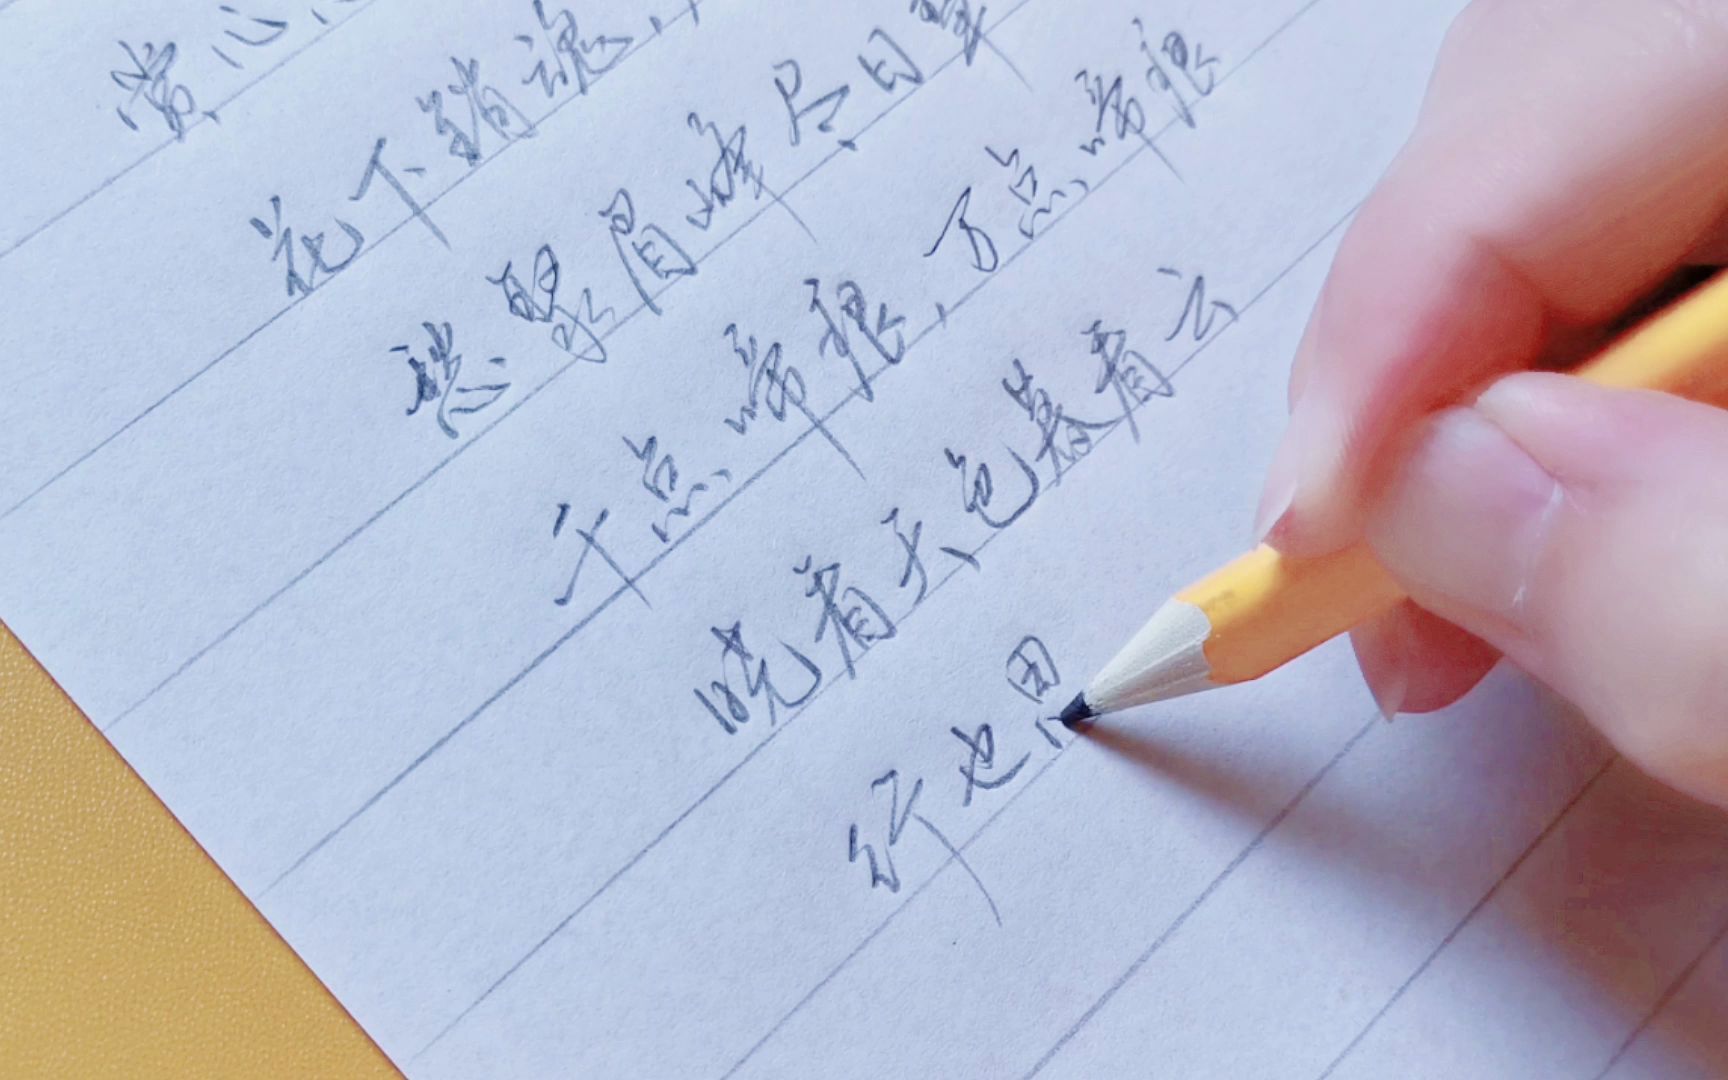 赏心
花下销魂,
愁聚眉峰尽日颦
千点啼痕,万点啼痕
晓看天色暮看云
行也思